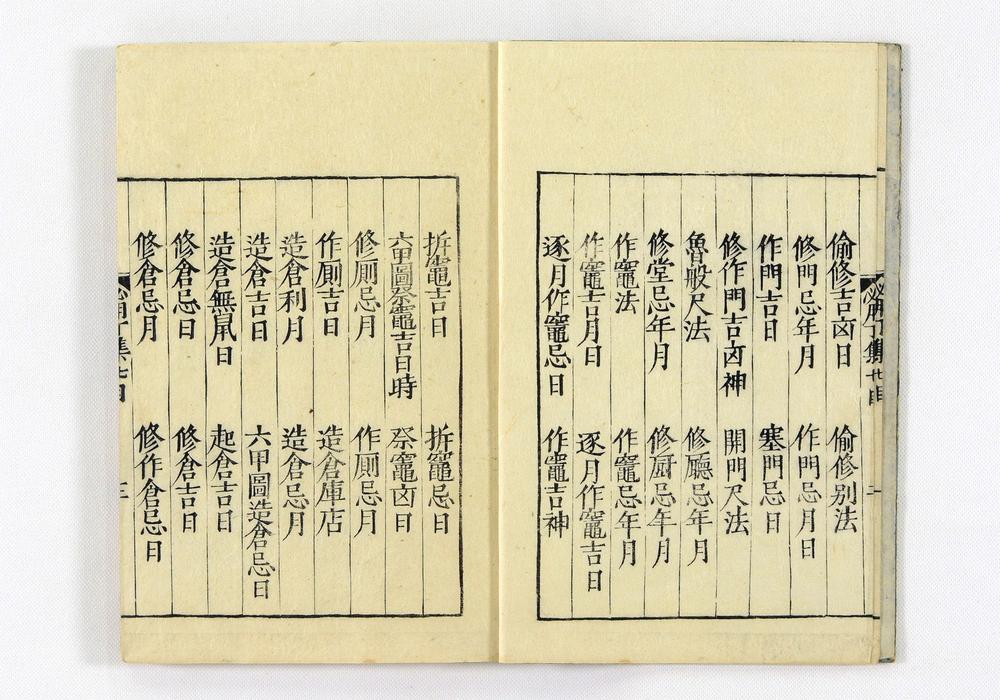 偷修吉凶日　偷修别法
修門忌年月　作門忌月日
作門吉日　塞門忌日
修作門吉凶神　開門尺法
魯般尺法　修廳忌年月
修堂忌年月　修厨忌年月
作竈法　作竈忌年月
作竈吉月日　逐月作竈吉日
逐月作竈忌日　作竈吉神
拆竈吉日　拆竈忌日
六甲圖祭竈吉日時　祭竈凶日
修厠忌月　作厠忌月
作厠吉日　造倉庫店
造倉利月　造倉忌月
造倉吉日　六甲圖造倉忌日
造倉無鼠日　起倉吉日
修倉忌日　修倉吉日
修倉忌月　修作倉忌日